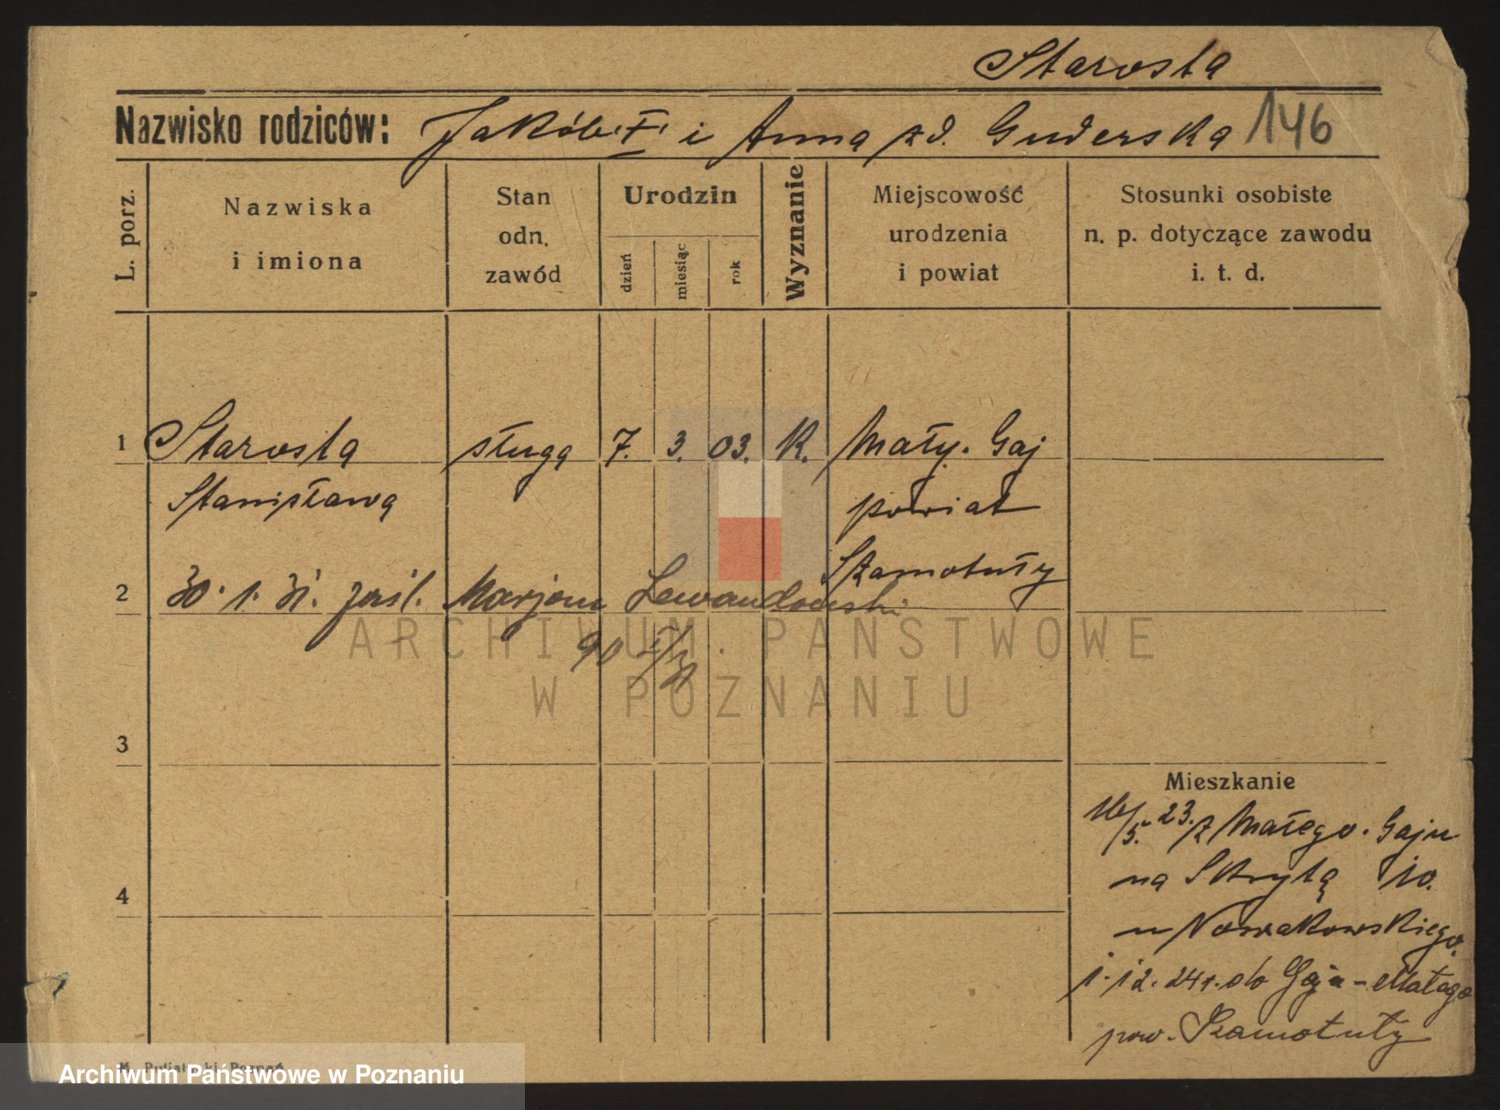 Starosta
Nazwisko rodziców: Jakób. F. i Anna zd. Guderska 146
L. porz.
Nazwiska
i imiona
Stan
odn.
zawód
Urodzin
dzień
miesiąc
rok
Wyznanie
Miejscowość
urodzenia
i powiat
Stosunki osobiste
n. p. dotyczące zawodu
i. t. d.
1 Starosta sługa 7. 3. 03. K. Mały. Gaj
Stanisława powiat
Szamotuły
2 30. 1. 31. zaśl. Marjana Lewandowski
90
3
4
Mieszkanie
16/5. 23. z Małego. Gaju
na Skrytą 10.
u Nowakowskiego.
1. 12. 24 r. do Gaju-Małego
pow. Szamotuły
ARCHIWUM PAŃSTWOWE
W POZNANIU
Archiwum Państwowe w Poznaniu